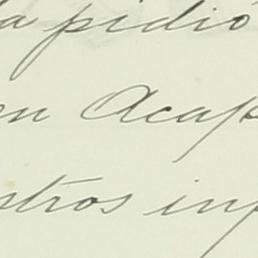 a pidió
en Acap
stros inf